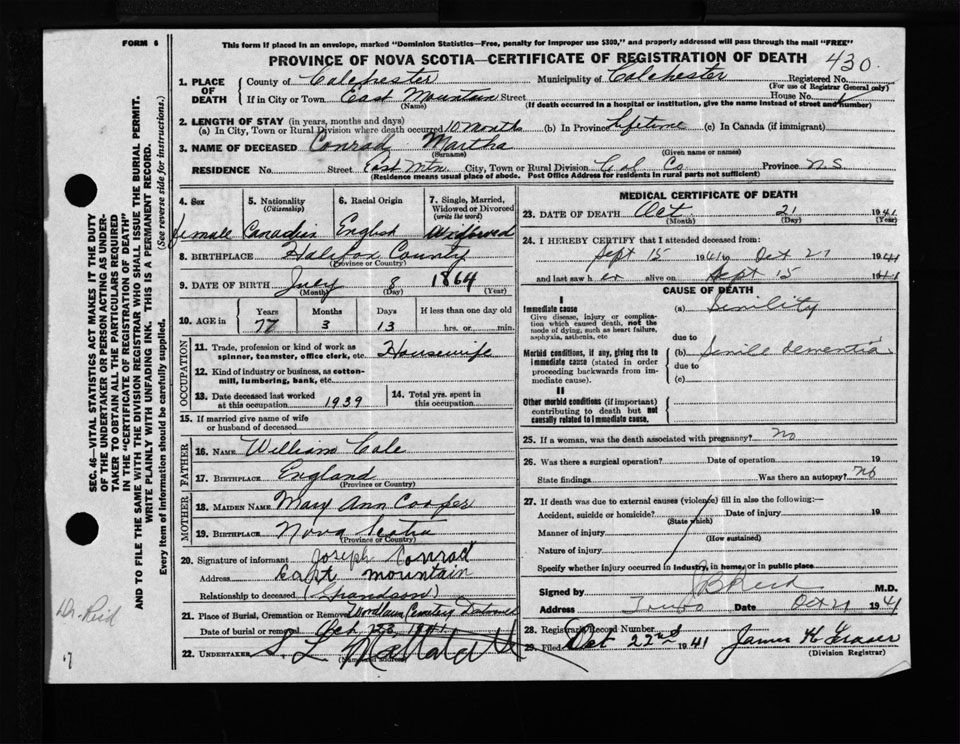 FORM 6
This form if placed in an envelope, marked "Dominion Statistics—Free, penalty for improper use $300," and properly addressed will pass through the mail "FREE"
PROVINCE OF NOVA SCOTIA—CERTIFICATE OF REGISTRATION OF DEATH
430
1. PLACE OF DEATH
County of Colchester Municipality of Colchester Registered No.
(For use of Registrar General only)
If in City or Town East Mountain Street House No.
(Name) (If death occurred in a hospital or institution, give the name instead of street and number)
2. LENGTH OF STAY (in years, months and days)
(a) In City, Town or Rural Division where death occurred 10 months (b) In Province Lifetime (c) In Canada (if immigrant)
3. NAME OF DECEASED Conrad Martha
(Surname) (Given name or names)
RESIDENCE No. Street East Mtn. City, Town or Rural Division Col Co Province N S
(Residence means usual place of abode. Post Office Address for residents in rural parts not sufficient)
4. Sex
female
5. Nationality
(Citizenship)
Canadian
6. Racial Origin
English
7. Single, Married, Widowed or Divorced
(write the word)
Widowed
8. BIRTHPLACE Halifax County
(Province or Country)
9. DATE OF BIRTH July 8 1864
(Month) (Day) (Year)
10. AGE in Years Months Days If less than one day old
77 3 13 hrs. or min.
OCCUPATION
11. Trade, profession or kind of work as spinner, teamster, office clerk, etc. Housewife
12. Kind of industry or business, as cotton-mill, lumbering, bank, etc.
13. Date deceased last worked at this occupation 1939
14. Total yrs. spent in this occupation
15. If married give name of wife or husband of deceased
FATHER
16. NAME William Cale
17. BIRTHPLACE England
(Province or Country)
MOTHER
18. MAIDEN NAME Mary Ann Cooper
19. BIRTHPLACE Nova Scotia
(Province or Country)
20. Signature of informant Joseph Conrad
Address East mountain
Relationship to deceased (Grandson)
21. Place of Burial, Cremation or Removal Cemetery
Date of burial or removal 1941
22. UNDERTAKER S. L.
(Name and address)
MEDICAL CERTIFICATE OF DEATH
23. DATE OF DEATH Oct 21 1941
(Month) (Day) (Year)
24. I HEREBY CERTIFY that I attended deceased from:
Sept 15 1941 to Oct 21 1941
and last saw h er alive on Sept 15 1941
CAUSE OF DEATH
I
Immediate cause
Give disease, injury or complication which caused death, not the mode of dying, such as heart failure, asphyxia, asthenia, etc
(a) Senility
due to
Morbid conditions, if any, giving rise to immediate cause (stated in order proceeding backwards from immediate cause).
(b) Senile dementia
due to
(c)
II
Other morbid conditions (if important) contributing to death but not causally related to immediate cause.
25. If a woman, was the death associated with pregnancy? no
26. Was there a surgical operation? Date of operation 19
State findings Was there an autopsy? no
27. If death was due to external causes (violence) fill in also the following:—
Accident, suicide or homicide? Date of injury 19
(State which)
Manner of injury
(How sustained)
Nature of injury
Specify whether injury occurred in industry, in home, or in public place
Signed by Reid M.D.
Address Truro Date Oct 21 1941
28. Registrar's Record Number
29. Filed Oct 22nd 1941 James H Fraser
(Division Registrar)
SEC. 46—VITAL STATISTICS ACT MAKES IT THE DUTY
OF THE UNDERTAKER OR PERSON ACTING AS UNDER-
TAKER TO OBTAIN ALL THE PARTICULARS REQUIRED
IN THE "CERTIFICATE OF REGISTRATION OF DEATH"
AND TO FILE THE SAME WITH THE DIVISION REGISTRAR WHO SHALL ISSUE THE BURIAL PERMIT.
WRITE PLAINLY WITH UNFADING INK. THIS IS A PERMANENT RECORD.
Every item of information should be carefully supplied. (See reverse side for instructions.)
Dr. Reid